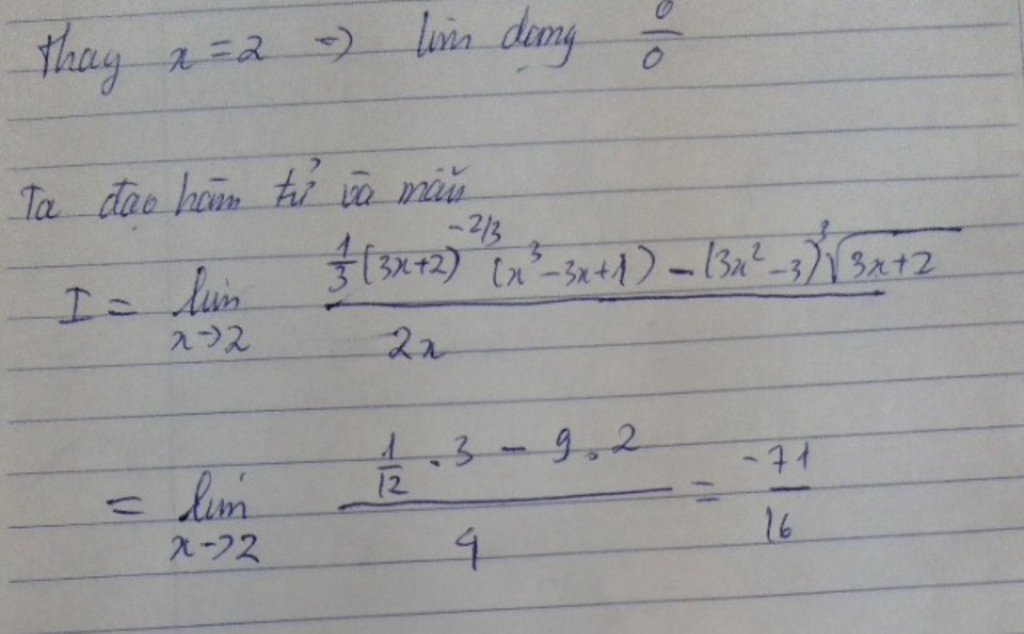 thay x = 2 => lim dạng 0/0
Ta đạo hàm tử và mẫu
I = lim x->2 (1/3 (3x+2)^(-2/3) (x³ - 3x + 1) - (3x² - 3) ³√(3x+2)) / 2x
= lim x->2 (1/12 . 3 - 9 . 2) / 4 = -71/16